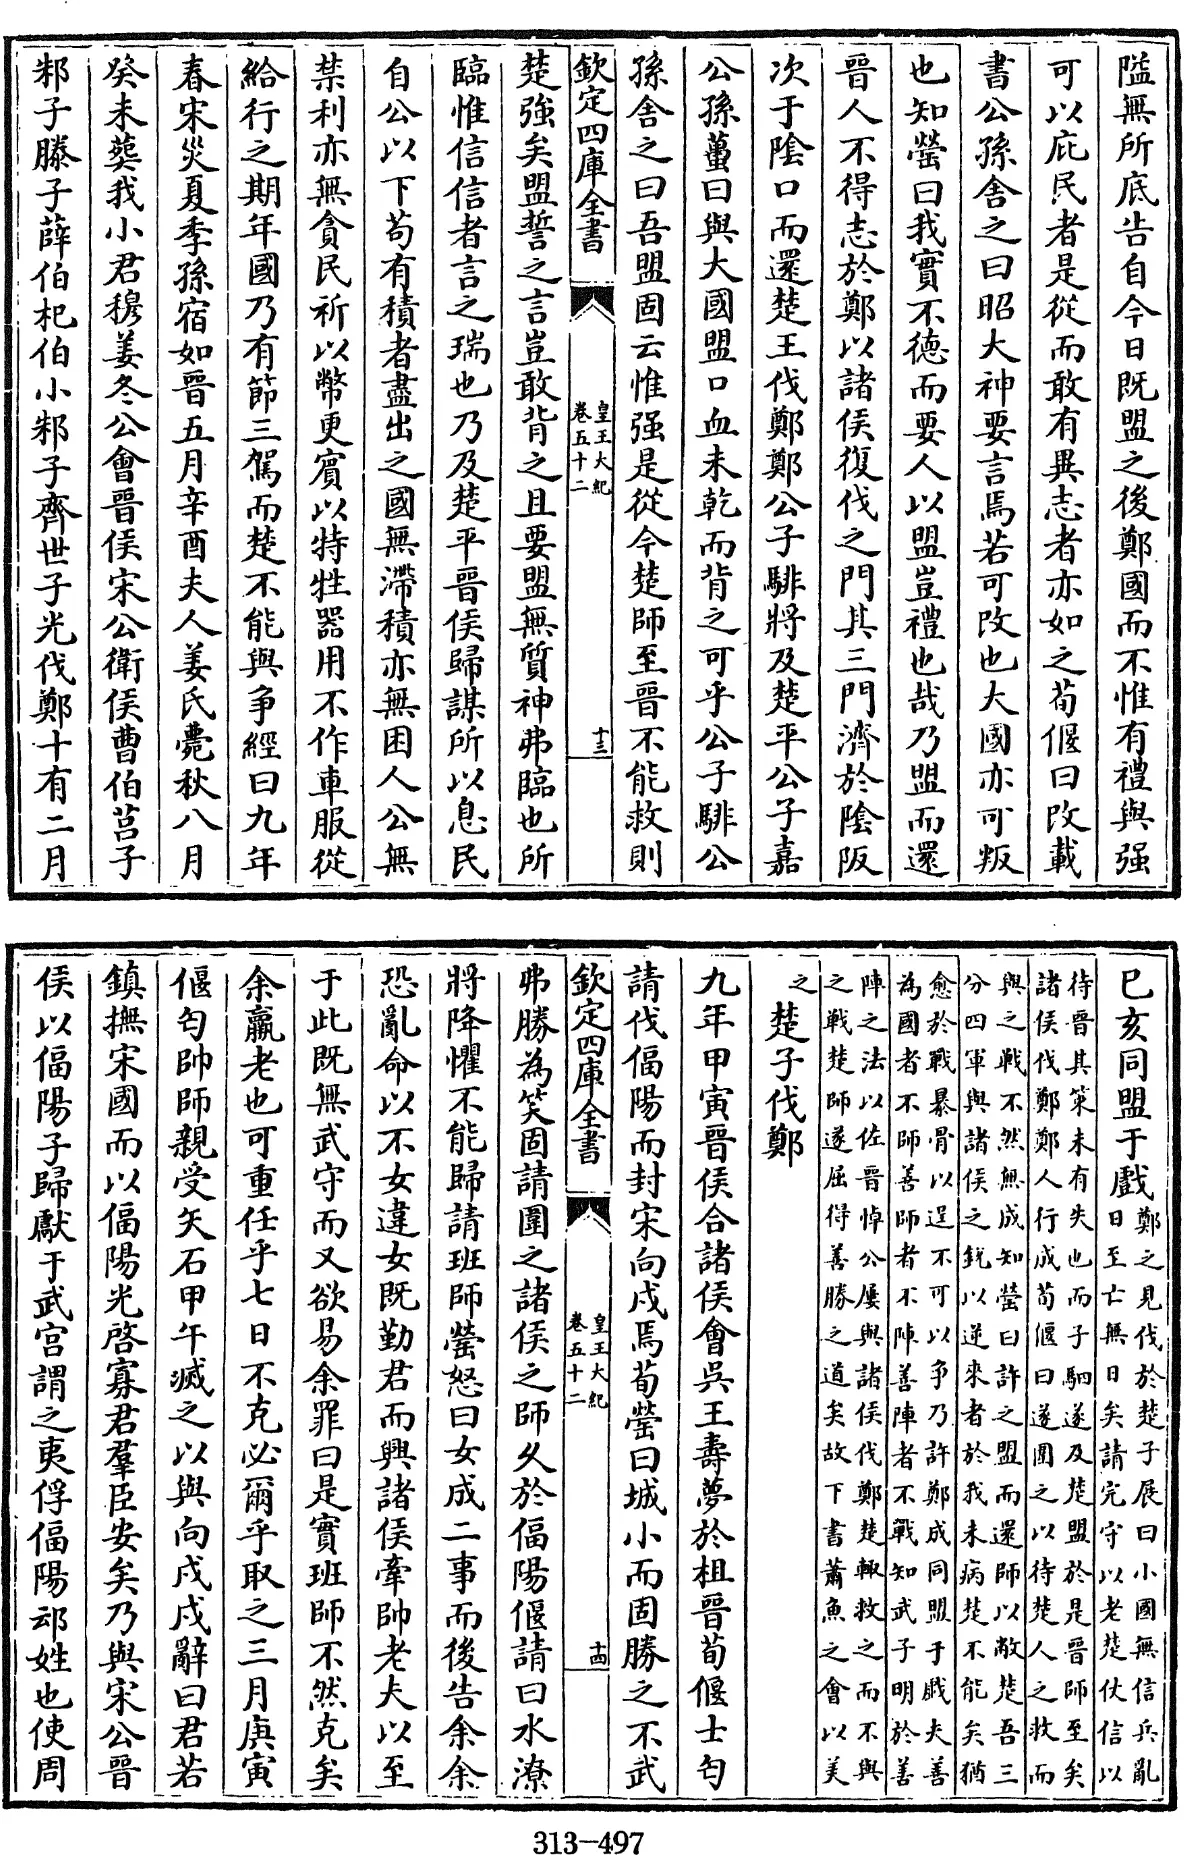 隘無所底告自今日既盟之後鄭國而不惟有禮與强
可以庇民者是從而敢有異志者亦如之荀偃曰改載
書公孫舍之曰昭大神要言焉若可改也大國亦可叛
也知罃曰我實不德而要人以盟豈禮也哉乃盟而還
晉人不得志於鄭以諸侯復伐之門其三門濟於陰阪
次于陰口而還楚王伐鄭鄭公子騑將及楚平公子嘉
公孫蠆曰與大國盟口血未乾而背之可乎公子騑公
孫舍之曰吾盟固云惟强是從今楚師至晉不能救則
欽定四庫全書
皇王大紀
卷五十二
十三
楚強矣盟誓之言豈敢背之且要盟無質神弗臨也所
臨惟信信者言之瑞也乃及楚平晉侯歸謀所以息民
自公以下苟有積者盡出之國無滯積亦無困人公無
禁利亦無貪民祈以幣更賓以特牲器用不作車服從
給行之期年國乃有節三駕而楚不能與争經曰九年
春宋災夏季孫宿如晉五月辛酉夫人姜氏薨秋八月
癸未葬我小君穆姜冬公會晉侯宋公衛侯曹伯莒子
邾子滕子薛伯杞伯小邾子齊世子光伐鄭十有二月
己亥同盟于戲鄭之見伐於楚子展曰小國無信兵亂
日至亡無日矣請完守以老楚仗信以
待晉其策未有失也而子駟遂及楚盟於是晉師至矣
諸侯伐鄭鄭人行成荀偃曰遂圍之以待楚人之救而
與之戰不然無成知罃曰許之盟而還師以敝楚吾三
分四軍與諸侯之鋭以逆來者於我未病楚不能矣猶
愈於戰暴骨以逞不可以争乃許鄭成同盟于戲夫善
為國者不師善師者不陣善陣者不戰知武子明於善
陣之法以佐晉悼公屢與諸侯伐鄭楚輙救之而不與
之戰楚師遂屈得善勝之道矣故下書蕭魚之會以美
之
楚子伐鄭
九年甲寅晉侯合諸侯會吳王壽夢於柤晉荀偃士匄
請伐偪陽而封宋向戌焉荀罃曰城小而固勝之不武
欽定四庫全書
皇王大紀
卷五十二
十四
弗勝為笑固請圍之諸侯之師乆於偪陽偃請曰水潦
將降懼不能歸請班師罃怒曰女成二事而後告余余
恐亂命以不女違女既勤君而興諸侯牽帥老夫以至
于此既無武守而又欲易余罪曰是實班師不然克矣
余羸老也可重任乎七日不克必爾乎取之三月庚寅
偃匄帥師親受矢石甲午滅之以與向戌戌辭曰君若
鎮撫宋國而以偪陽光啓寡君羣臣安矣乃與宋公晉
侯以偪陽子歸獻于武宮謂之夷俘偪陽妘姓也使周
313-497